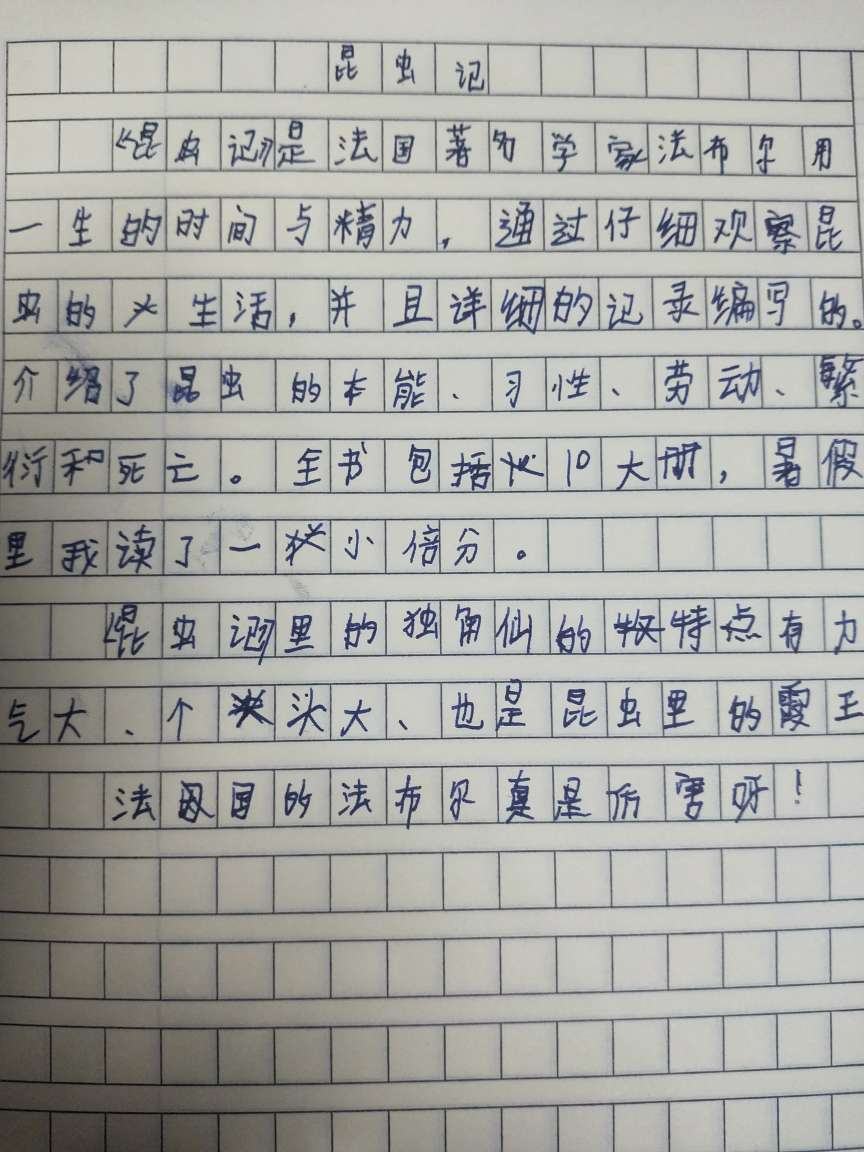 昆虫记
《昆虫记》是法国著名学家法布尔用
一生的时间与精力，通过仔细观察昆
虫的生活，并且详细的记录编写的。
介绍了昆虫的本能、习性、劳动、繁
衍和死亡。全书包括10大册，暑假
里我读了一小倍分。
《昆虫记》里的独角仙的特点有力
气大、个头大、也是昆虫里的霞王
法国的法布尔真是厉害呀！